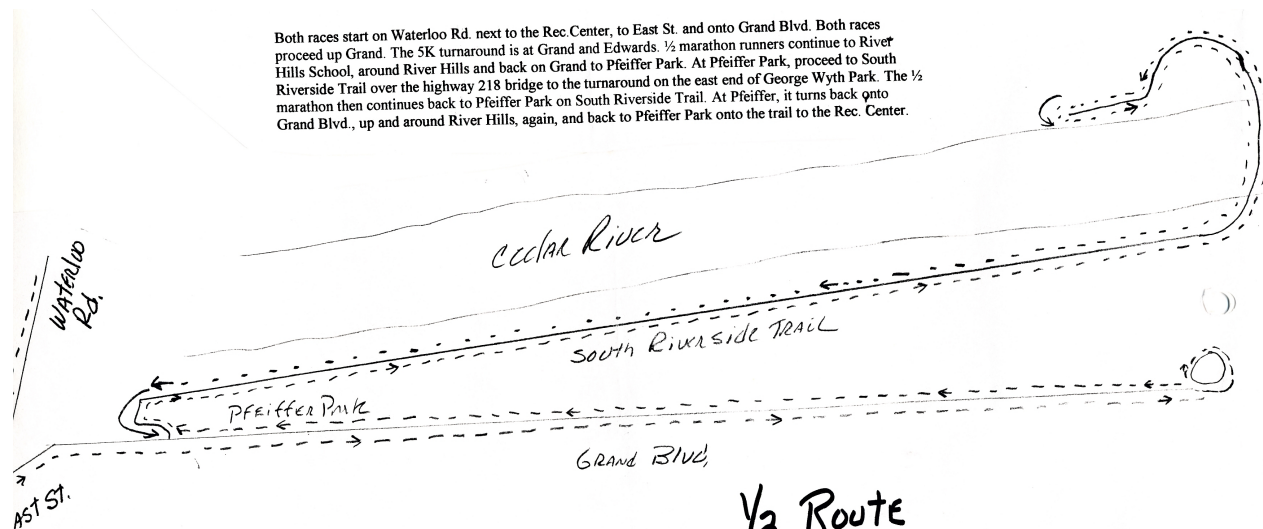 Both races start on Waterloo Rd. next to the Rec.Center, to East St. and onto Grand Blvd. Both races
proceed up Grand. The 5K turnaround is at Grand and Edwards. ½ marathon runners continue to River
Hills School, around River Hills and back on Grand to Pfeiffer Park. At Pfeiffer Park, proceed to South
Riverside Trail over the highway 218 bridge to the turnaround on the east end of George Wyth Park. The ½
marathon then continues back to Pfeiffer Park on South Riverside Trail. At Pfeiffer, it turns back onto
Grand Blvd., up and around River Hills, again, and back to Pfeiffer Park onto the trail to the Rec. Center.
Cedar River
Waterloo
Rd.
South Riverside Trail
Pfeiffer Park
Grand Blvd,
ast St.
½ Route